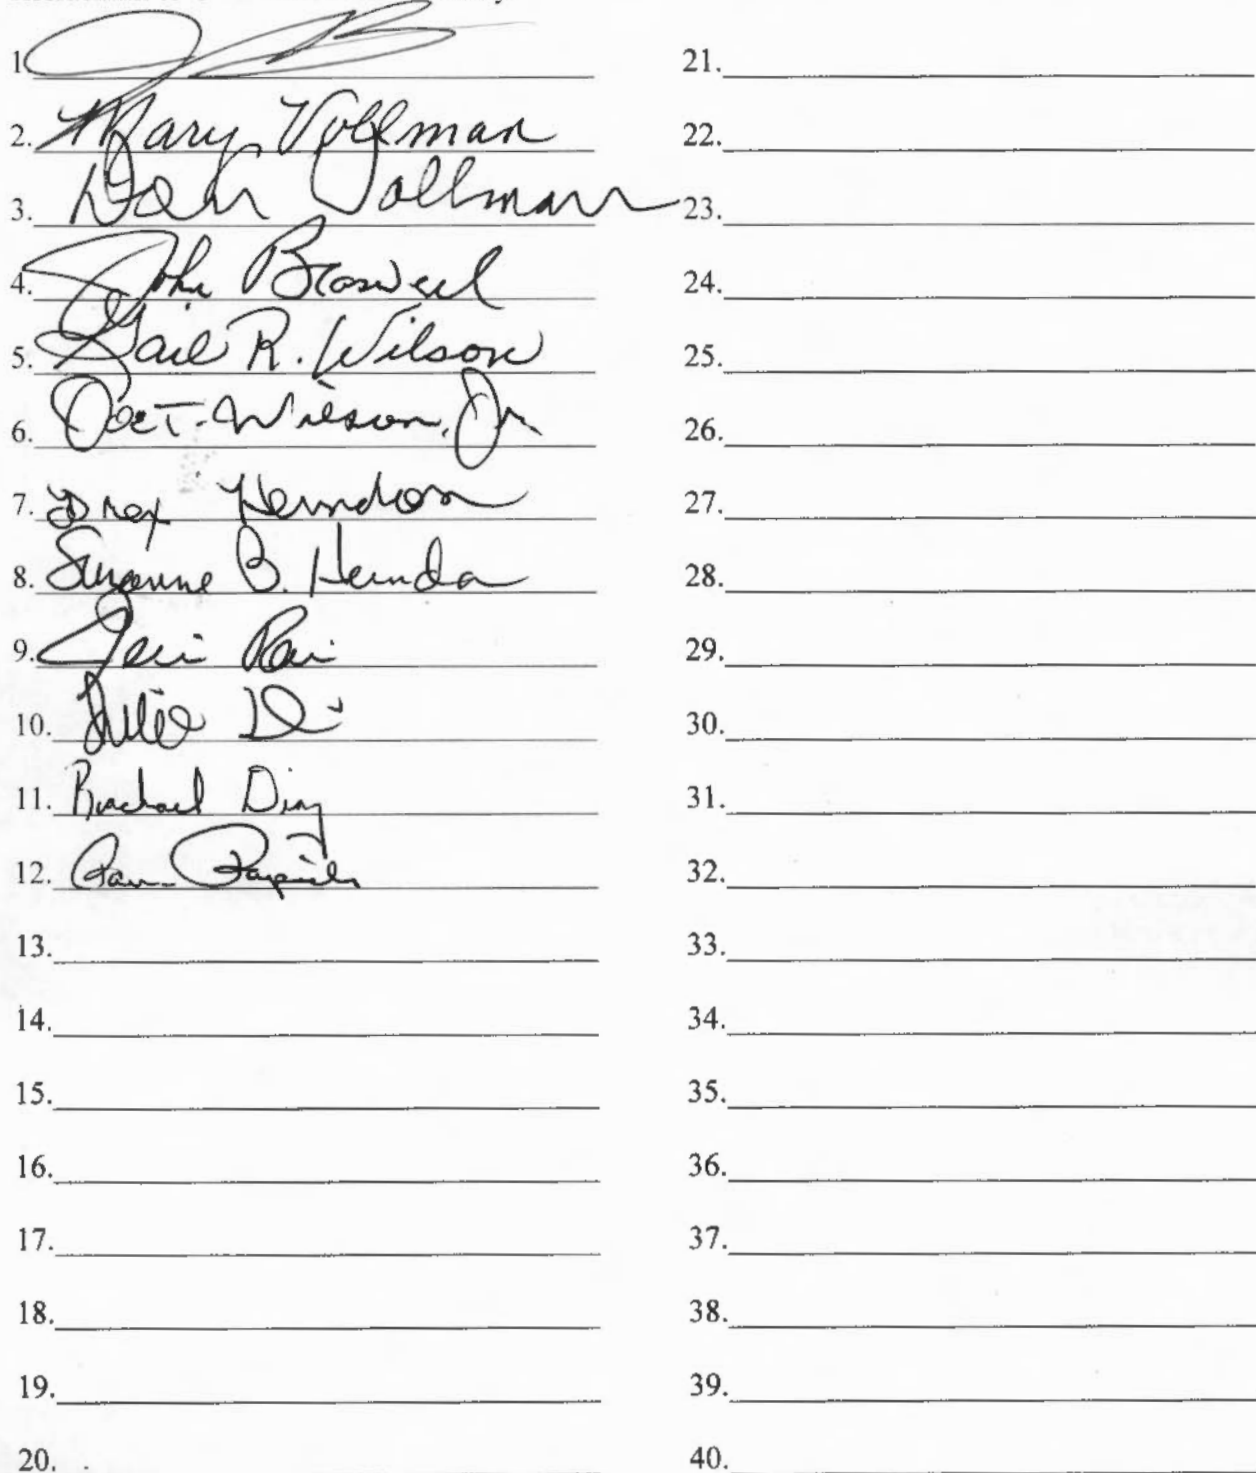 1.
2. Mary Vollman
3. Dan Vollman
4. John Braswell
5. Gail R. Wilson
6. Joe T. Wilson, Jr
7. Drex Herndon
8. Suzanne B. Herndon
9.
10.
11. Rachael Diaz
12.
13.
14.
15.
16.
17.
18.
19.
20.
21.
22.
23.
24.
25.
26.
27.
28.
29.
30.
31.
32.
33.
34.
35.
36.
37.
38.
39.
40.